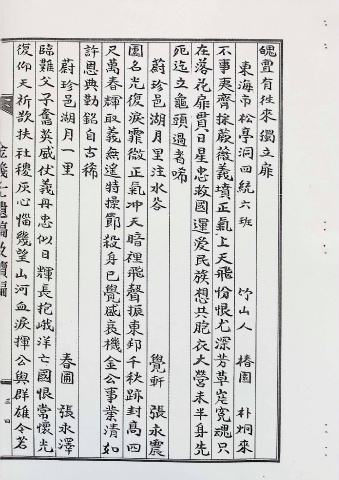 魄豊有徃來獨立扉
東海市松亭洞四統六班 竹山人 椿園 朴炯來
不事夷齊採蕨薇義墳正氣上天飛忿恨尤深芳草芷寃魂只
在落花扉貫日星忠救國運愛民族想共胞衣大營未半身先
死迄立龜頭過者唏
蔚珍邑湖月里注水谷 覺軒 張永震
圖名光復淚霏微正氣冲天暗裡飛聲振東邦千秩跡封高四
尺萬春輝取義無違特操節殺身已覺感哀機金公事業清如
許恩典勒銘自古稀
蔚珍邑湖月一里 春圃 張永澤
臨難父子奮英威伏義丹忠似日輝長抱峨洋亡國恨常懷光
復仰天祈欺扶社稷灰心惱幾望山河血淚揮公與群雄令名
三四